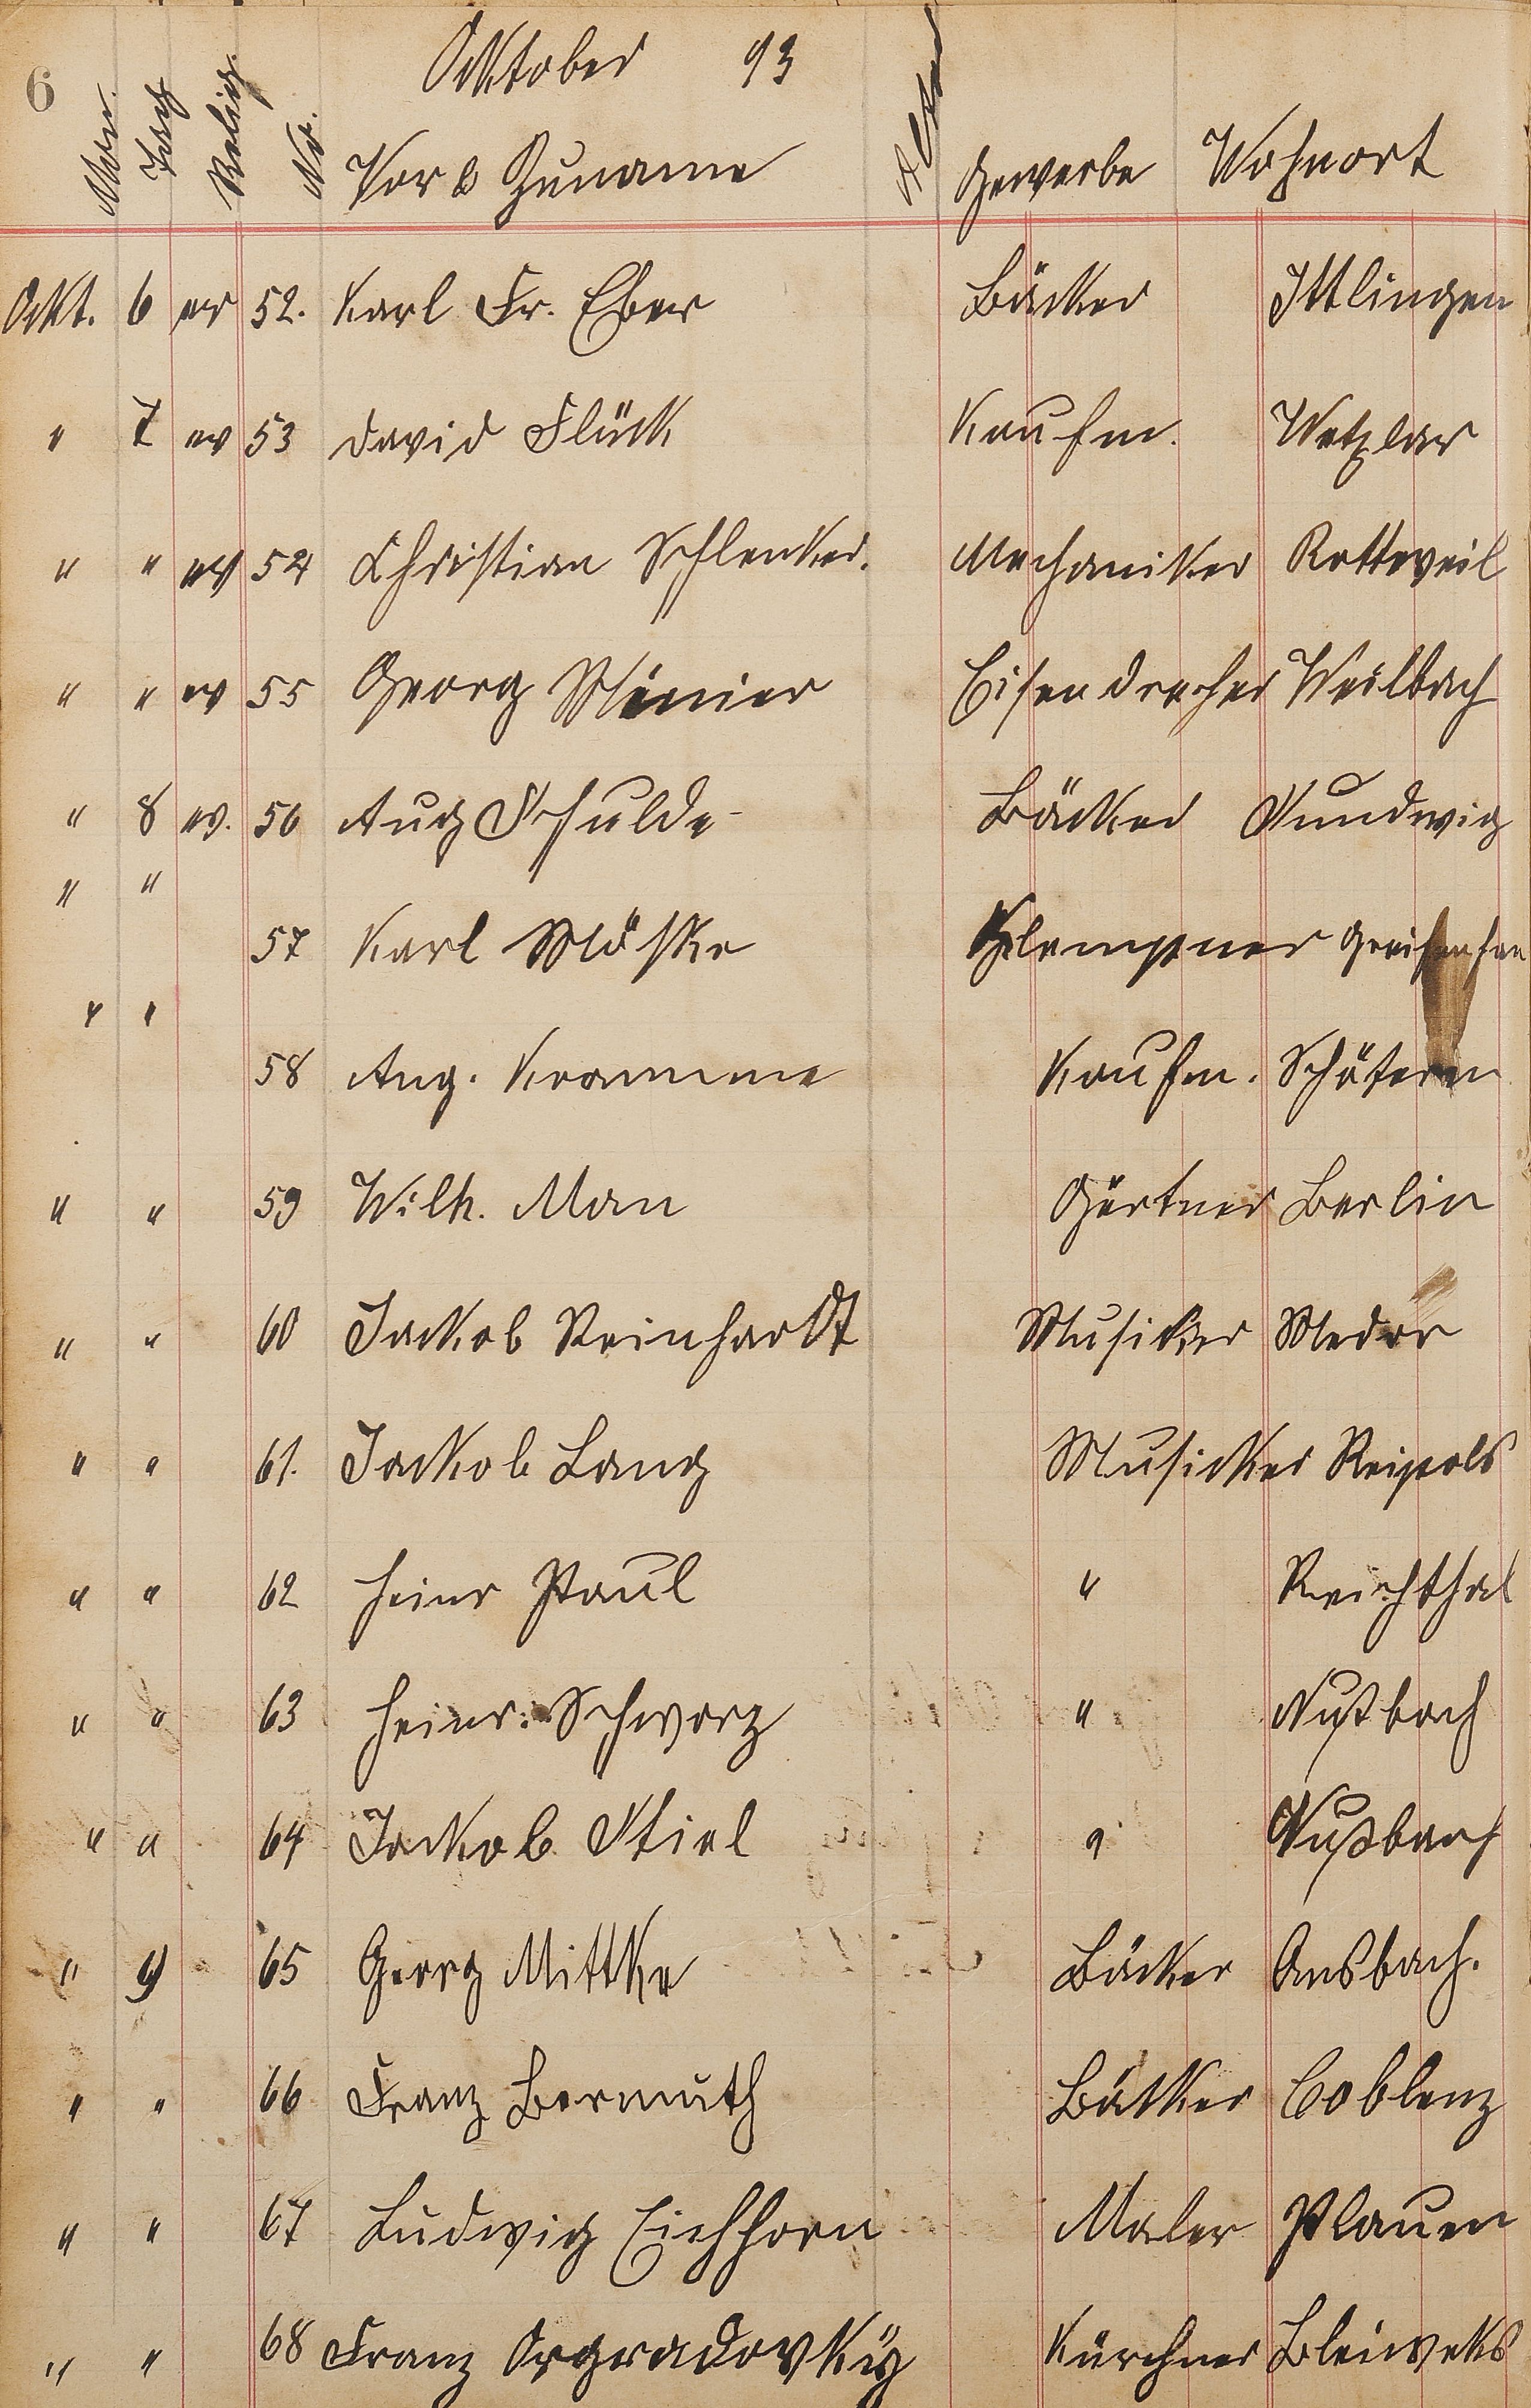 6
Ocktober 93
Mon. Tag Relig. No. Vor & Zuname Alter Gewerbe Wohnort
Ockt. 6 ev 52. Karl Fr. Eber Bäcker Ittlingen
" 7 ev 53 David Flück Kaufm. Wetzlar
" " ev 54 Christian Schlenker. Mechaniker Rottweil
" " ev 55 Georg Eisendreher Weilbach
" 8 ev. 56 Aug Schulde Bäcker Sundwig
" "
57 Karl Möske Klempner
" "
58 Aug. Kramme Kaufm.
" " 59 Wilh. Man Gärtner Berlin
" " 60 Jackob Reinhardt Musicker
" " 61. Jackob Lang Musicker Reipols
" " 62 Heinr Paul " Reichthal
" " 63 Heinr. Schwarz " Nußbach
" " 64 Jackob Stiel " Nußbach
" 9 65 Georg Mittke Bäcker Ansbach.
" " 66 Franz Bermuth Bäcker Coblenz
" " 67 Ludwig Eichhorn Maler Plauen
" " 68 Franz Kürchner